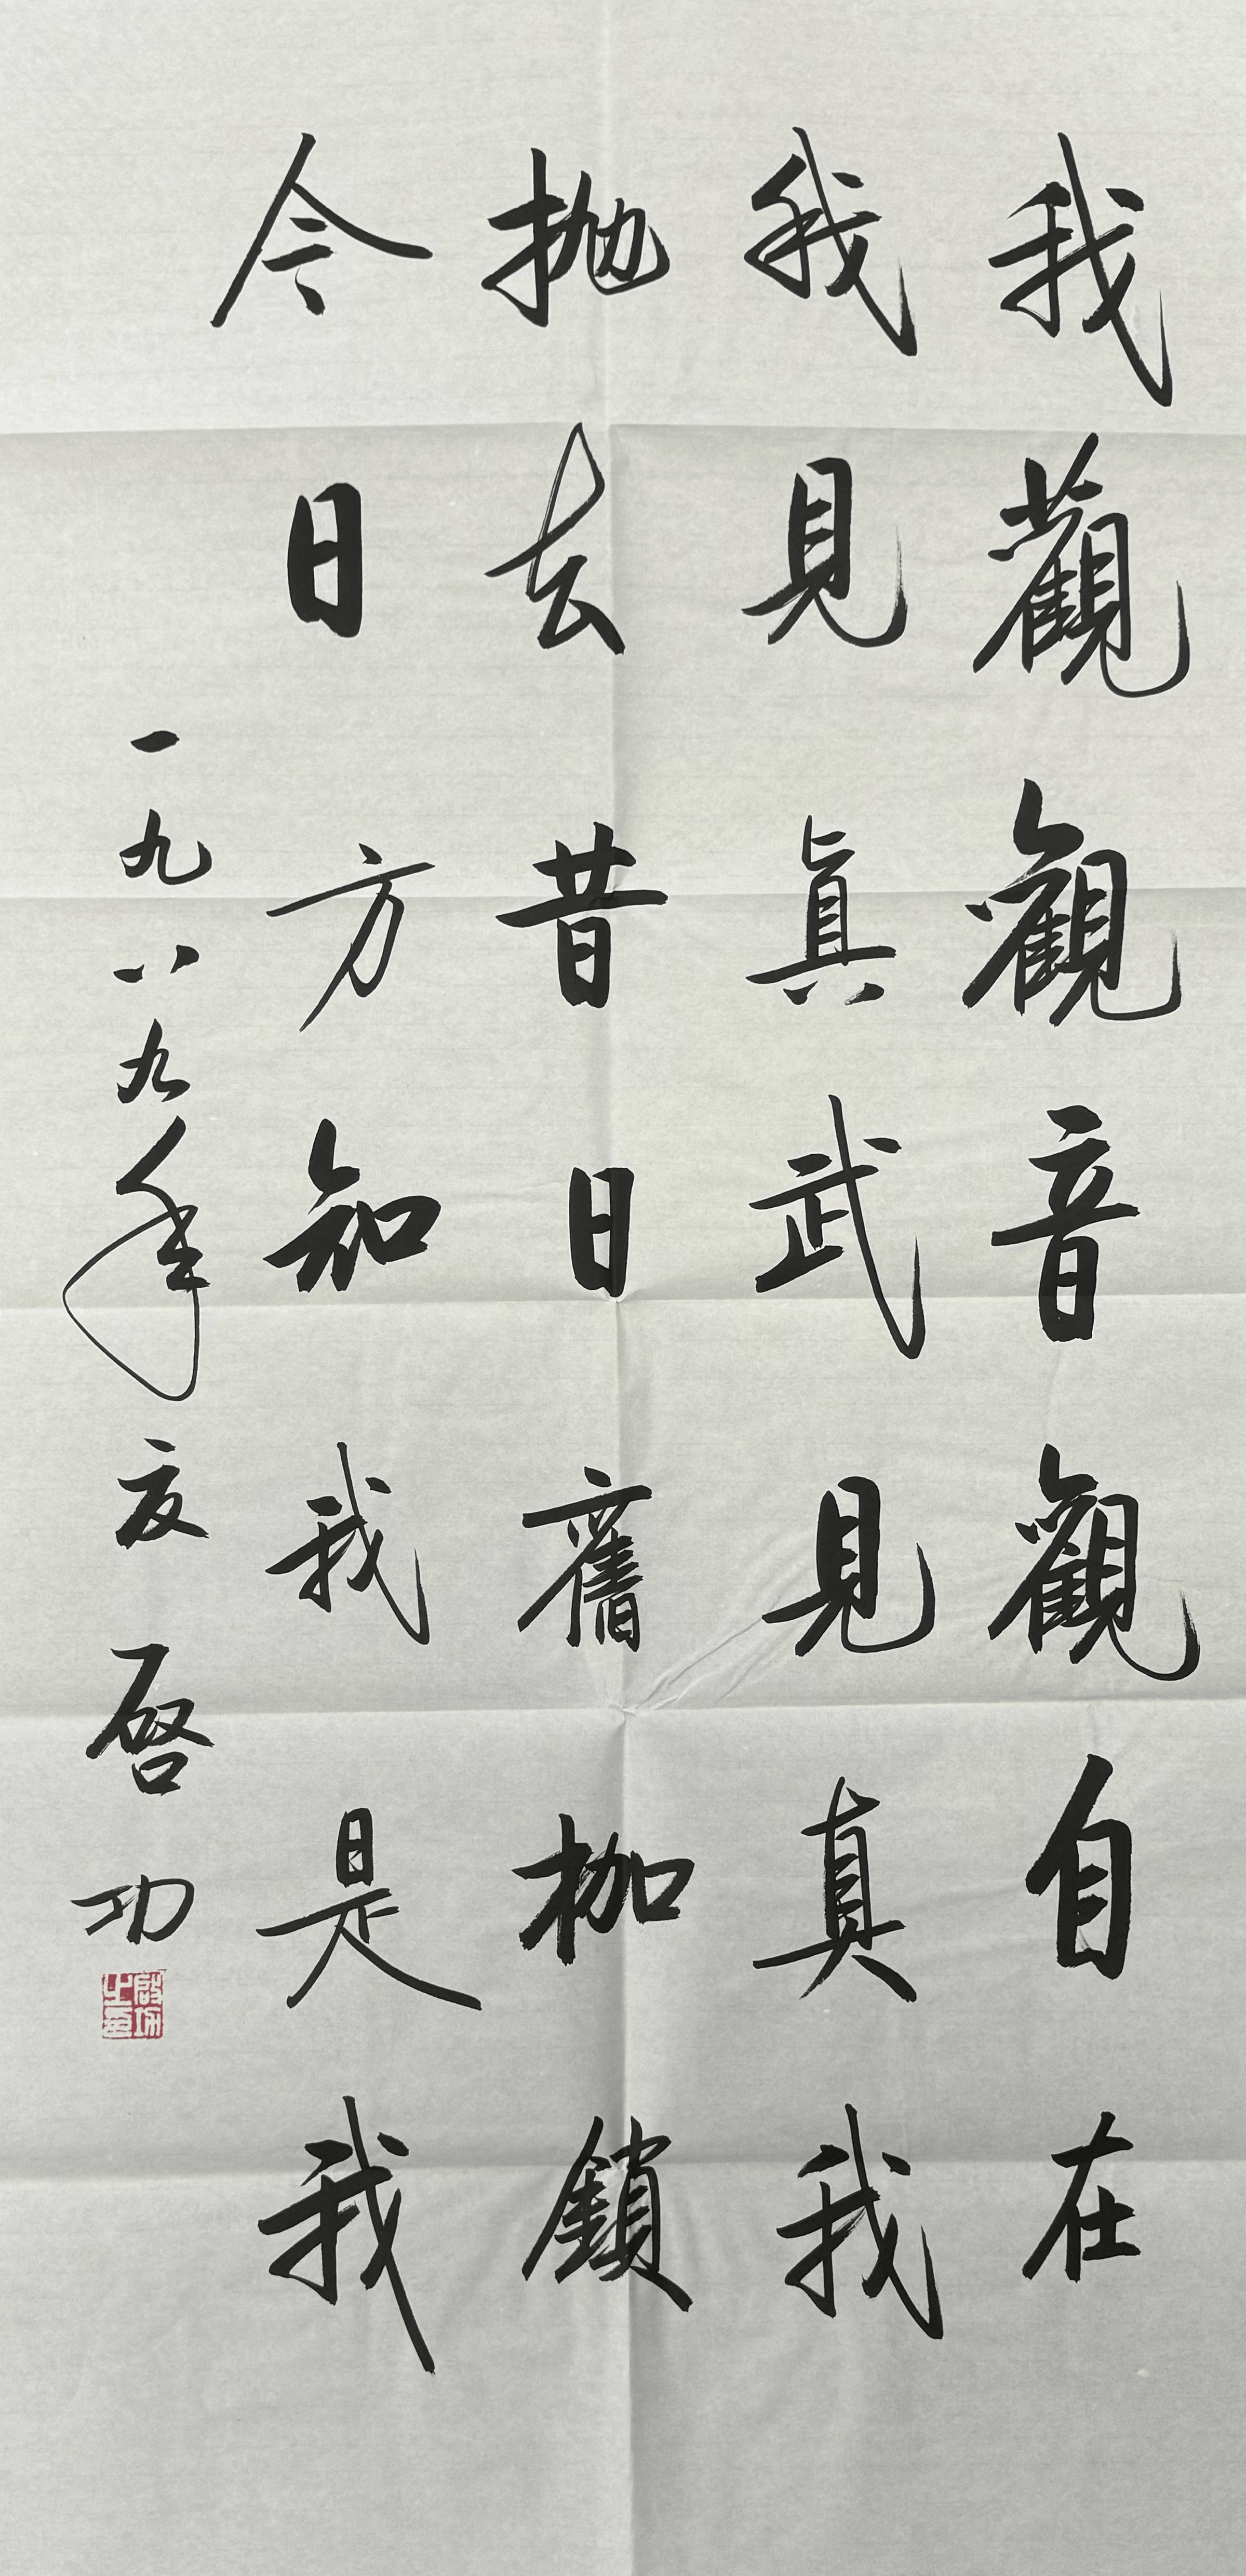 我觀觀音觀自在
我見眞武見真我
抛去昔日舊枷鎖
今日方知我是我
一九八九年夜啓功
啟功之印